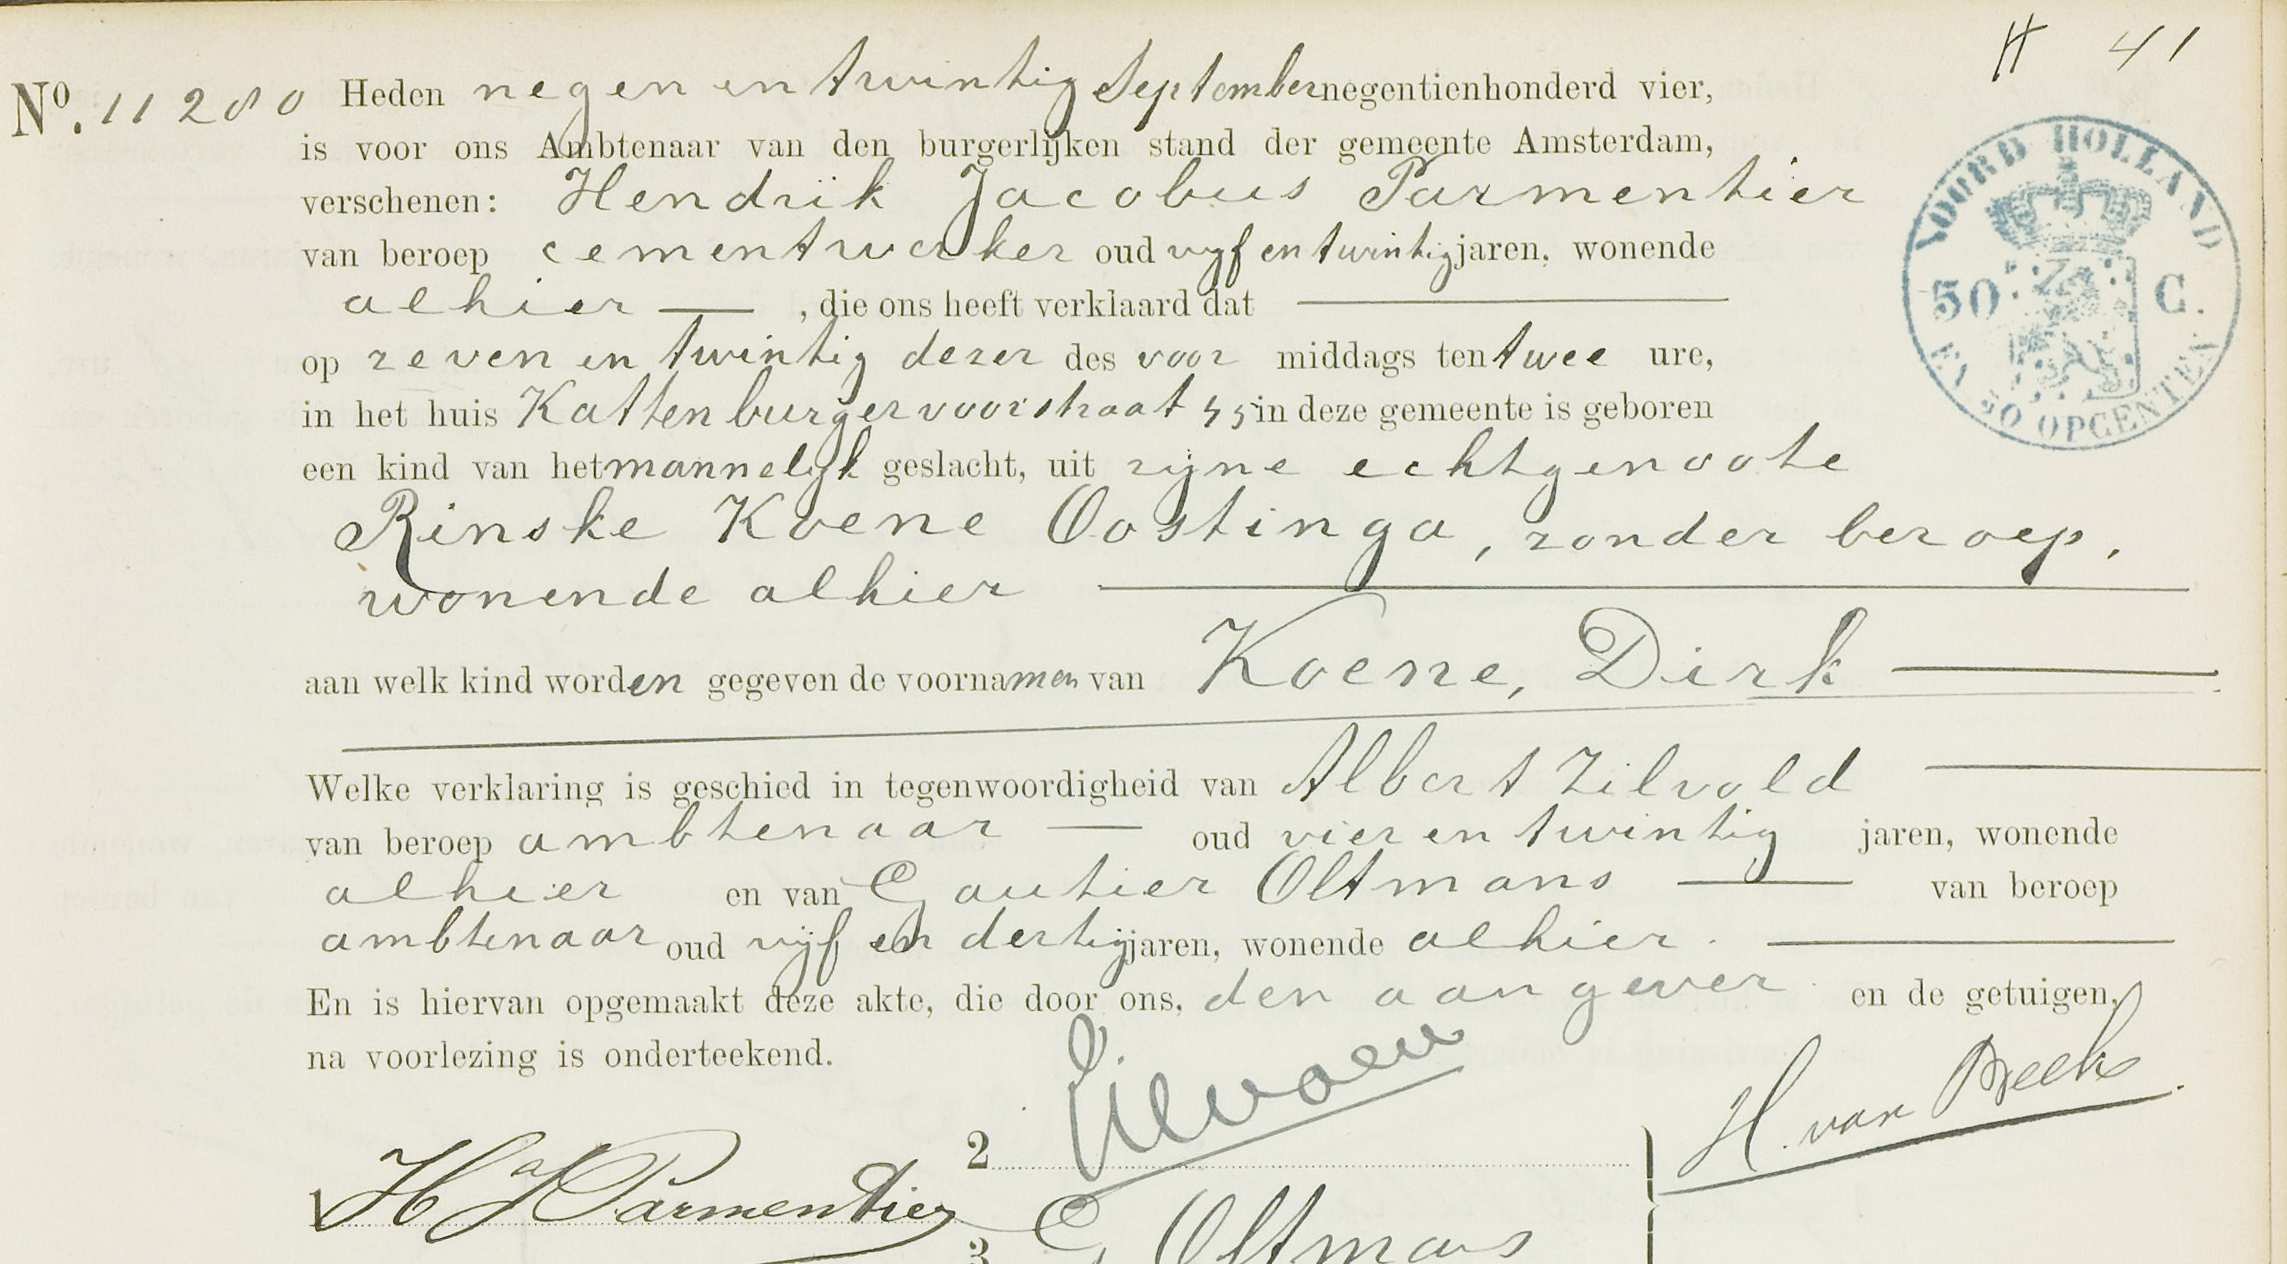 H 41
No. 11280 Heden negen en twintig September negentienhonderd vier,
is voor ons Ambtenaar van den burgerlijken stand der gemeente Amsterdam,
verschenen: Hendrik Jacobus Parmentier
van beroep cementwerker oud vijf en twintig jaren, wonende
alhier — , die ons heeft verklaard dat —
op zeven en twintig dezer des voor middags ten twee ure,
in het huis Kattenburgervoorstraat 45 in deze gemeente is geboren
een kind van het mannelijk geslacht, uit zijne echtgenoote
Rinske Koene Oostinga, zonder beroep,
wonende alhier —
aan welk kind worden gegeven de voornamen van Koene, Dirk —
Welke verklaring is geschied in tegenwoordigheid van Albert Zilvold —
van beroep ambtenaar — oud vier en twintig jaren, wonende
alhier en van Gautier Oltmans — van beroep
ambtenaar oud vijf en dertig jaren, wonende alhier. —
En is hiervan opgemaakt deze akte, die door ons, den aangever en de getuigen,
na voorlezing is onderteekend.
HJ Parmentier
2
3 G Oltmans
H. van
NOORD HOLLAND
50 C.
EN 50 OPCENTEN